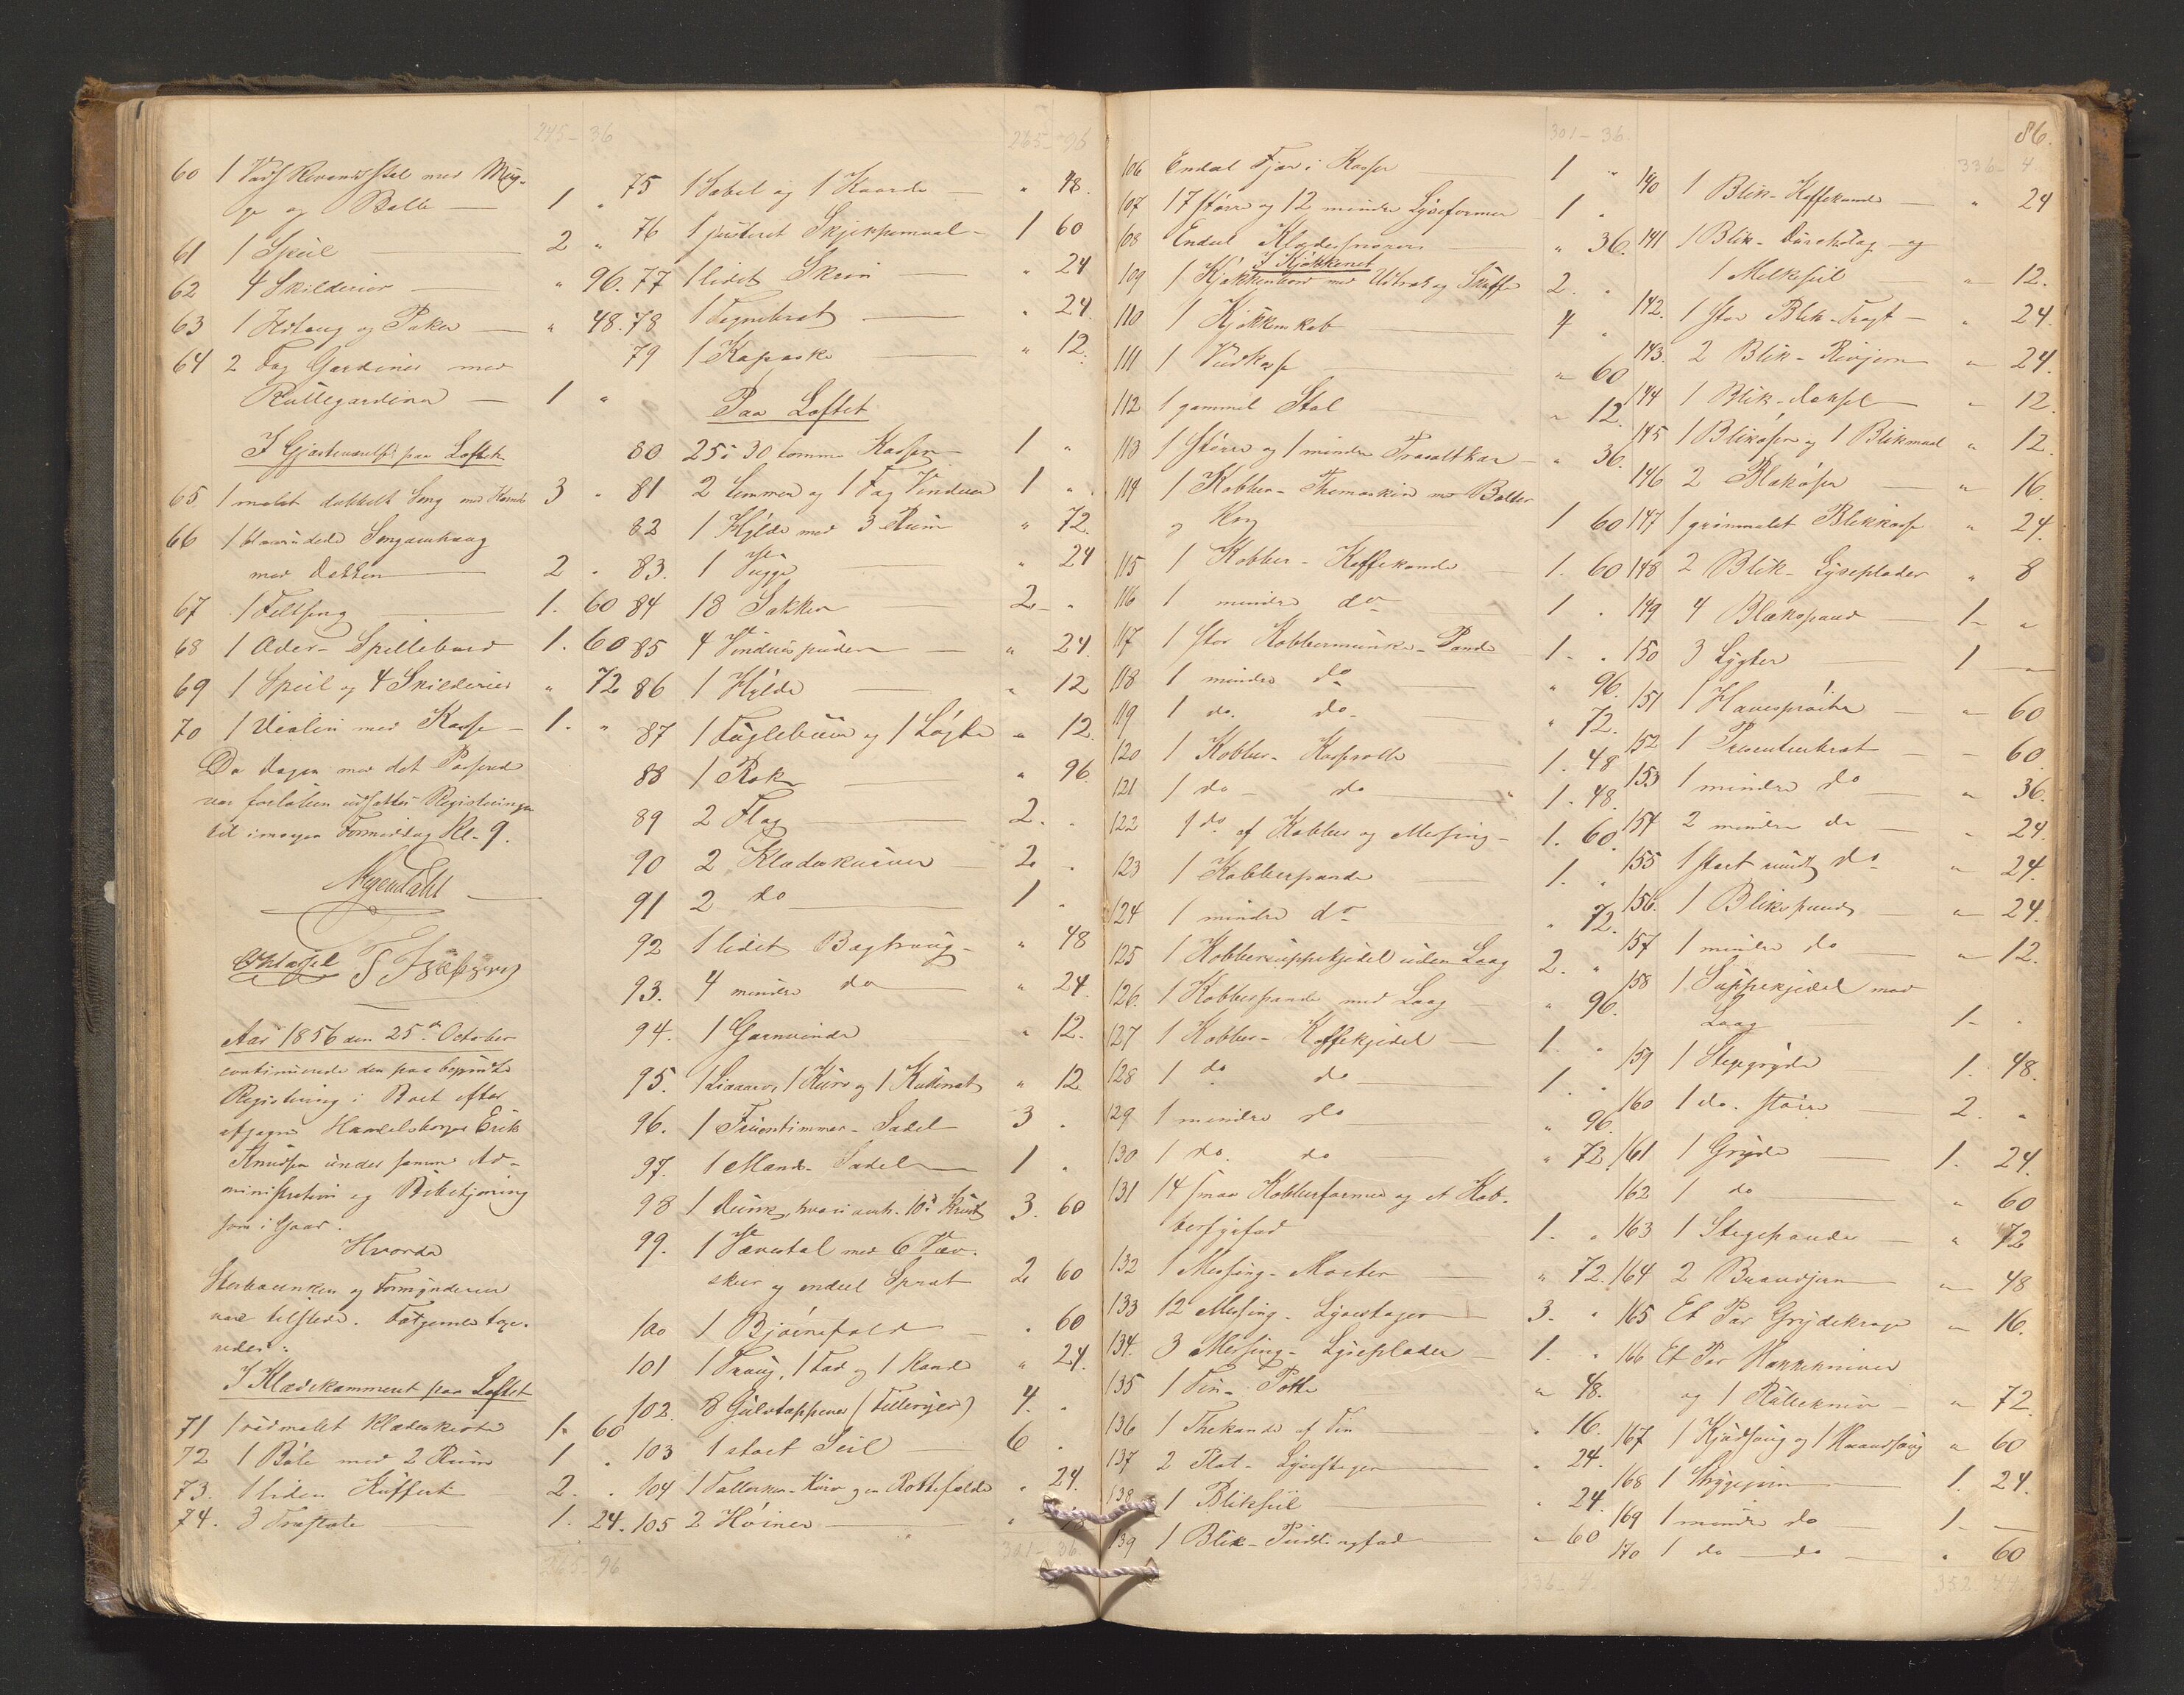 245 - 36
60 1 Vadskevandsstel med Mug-
ge og Balle — 1 "
61 1 Speil — 2 "
62 4 Skilderier — " 96.
63 1 Ildtang og Raker — " 48.
64 2 Fag Gardiner med
Rullegardiner — 1 "
I Gjesteværelset paa Loftet
65 1 malet dobbelt Seng med 3 "
66 1 Sengeomhæng
med Dekken — 2 "
67 1 Feltseng — 1. 60
68 1 Spillebord 1. 60
69 1 Speil og 4 Skilderier " 72
70 1 Violin med Kasse — 1. "
Da Dagen med det Passerede
var forløben udsattes Registreringen
til imorgen Formiddag Kl. 9.
Aar 1856 den 25de October
continuerede den paabegyndte
Registrering i Boet efter
afgagne Handelsborger Erik
Knudsen under samme Ad-
ministration og Betjening
som i Gaar.
Hvorda
Sterboenken og Formynderen
var tilstede. Følgende toge-
redes:
I Klædekammeret paa Loftet
71 1 rødmalet Klædekiste 1. 60
72 1 Bøle med 2 Rum 1 "
73. 1 liden Kuffert 2. "
74. 3 Træstole 1. 24.
265 - 96
265 - 96
75 1 Sabel og 1 Kaarde — " 48.
76 1 justeret Skjeppemaal — 1 60
77 1 lidet Skrin — " 24
78 1 Tegnebræt — " 24.
79 1 — " 12.
Paa Loftet
80 25 à 30 tomme Kasser — 1 "
81 2 Lemmer og 1 Fag Vinduer 1 "
82 1 Hylde med 3 Rum " 72.
83. 1 Vugge — " 24
84 18 Sækker — 2 "
85 4 Vinduespuder — " 24.
86 1 Hylde — " 12
87 1 Fuglebuur og 1 Løgte " 12.
88 1 Rok — " 96.
89 2 Flag — 2. "
90 2 Klædekurver — 2 "
91 2 do — 1 "
92 1 lidet Bagtraug — " 48
93. 4 mindre do — " 24.
94. 1 Garnvinde " 12.
95. 1 1 Kurv og 1 " 12
96. 1 Fruentimmer-Sadel 3 "
97. 1 Mands-Sadel — 1 "
98 1 Dunk, hvori 10 Krudt 3. 60
99. 1 Vævstol med 6 Væv-
skeer og endeel 2 60
100 1 Bjørnefeld — " 60
101 1 Traug, 1 Fad og 1 Kande " 24.
102. 8 Gulvtæpper (Filleryer) 4. "
103 1 stort Seil — 6 "
104 1 Tallerken-Kurv og en Rottefælde " 24.
105 2 — "
301 - 36
301 - 36.
106 Endeel Fjær i Kasser 1 "
107 17 større og 12 mindre Lyseformer — 1 "
108 Endeel Klædessnorer " 36.
I Kjøkkenet
109 1 Kjøkkenbord med Udtræk og Skuffe 2. "
110 1 Kjøkkenskab — 4 "
111 1 Vedkasse — " 60
112 1 gammel Stol — " 12.
113 1 større og 1 mindre — " 36.
114 1 Kobber-Themaskine med Bolter
og 1 60
115 1 Kobber-Kaffekande — 1. 60
116 1 mindre do 1 "
117 1 stor Kobbermunke-Pande — 1. "
118 1 mindre do — " 96.
119 1 do. do — " 72.
120 1 Kobber-Kasserolle — 1. 48
121 1 do — do — 1. 48.
122 1 do af Kobber og Messing — 1. 60.
123 1 Kobberpande — 1. "
124 1 mindre do — " 72.
125 1 Kobbersuppekjedel uden Laag 2. "
126. 1 Kobberpande med Laag " 96.
127 1 Kobber-Kaffekjedel — 1. "
128 1 do do 1. "
129 1 mindre do " 96.
130 1 do. do — " 72
131 14 smaa Kobberformer og et Kob-
berfyrfad 1. "
132 1 Messing-Morter " 72.
133 12 Messing-Lysestager — 3. "
134. 3 Messing-Lyseplader — 1. "
135 1 Tin-Potte " 48.
136 1 Thekande af Tin — " 16.
137 2 Plet-Lysestager — " 24.
138 1 Bliksiil — " 24
139 1 Blik-Pudingfad — " 60
336 - 4
86.
336 - 4
140 1 Blik-Kaffekande — " 24
141 1 Blik-Dørslag og
1 Melkesiil — " 12.
142. 1 stor Blik-Tragt — " 24.
143. 2 Blik-Rivjern — " 24.
144 1 Blik- — " 12.
145 1 Blikøse og 1 Blikmaal " 12.
146 2 — " 16.
147 1 grønmalet Blikkasse " 24.
148 2 Blik-Lyseplader " 8
149 4 Blækspand — 1 "
150 3 Lygter — 1 —
151 1 Havesprøite — " 60
152 1 Presenteerbræt — 60.
153 1 mindre do — " 36.
154 2 mindre do — " 24.
155 1 stort rundt do " 24.
156. 1 Blikspand — " 24.
157 1 mindre do — " 12.
158 1 Suppekjedel med
Laag — 1 "
159 1 Stegegryde — 1. 48.
160 1 do. større — 2. "
161 1 Gryde — 1. 24.
162 1 do — " 60
163 1 Stegepande — " 72
164 2 Brandjern — " 48
165 Et Par Grydekroge " 16.
166 Et Par Hakkekniver
og 1 Rullekniv — " 72.
167 1 Kjødsaug og 1 Haandsaug " 60
168 1 Strygejern — 1. 24.
169 1 mindre do — 1 —
170 1 do — do — " 60